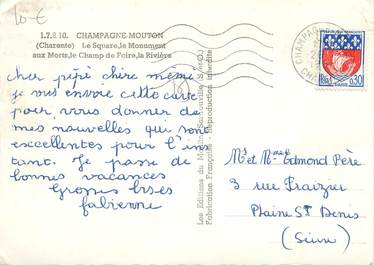 10-€
1.7.8.10. CHAMPAGNE-MOUTON
(Charente) Le Square, le Monument
aux Morts, le Champ de Foire, la Rivière
cher pépé chère mémé
je vous envoie cette carte
pour vous donner de
mes nouvelles qui sont
excellentes pour l'ins
tant. Je passe de
bonnes vacances
Grosses bises
fabienne
Fabrication Française - Reproduction interdite
CHAMPAGNE
0,30
Mr et Mme Edmond Père
3 rue Fraizier
Plaine St Denis
(Seine)